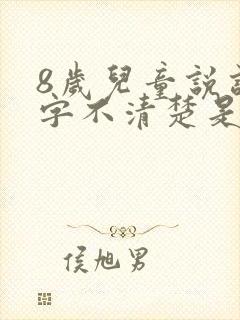 8歲兒童說
字不清楚是
侯旭男